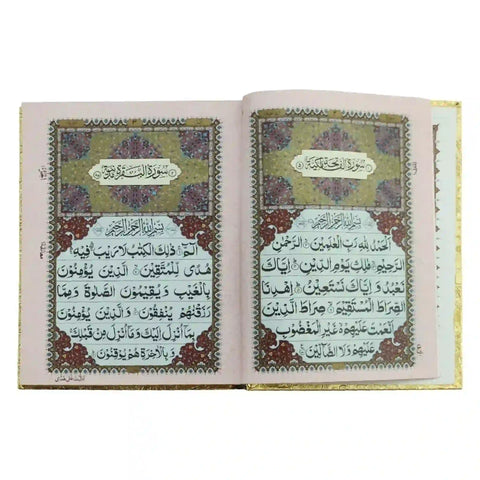 سورة الفاتحة مكية
بسم الله الرحمن الرحيم
الحمد لله رب العلمين الرحمن
الرحيم ملك يوم الدين اياك
نعبد و اياك نستعين اهدنا
الصراط المستقيم صراط الذين
انعمت عليهم غير المغضوب
عليهم ولا الضالين
سورة البقرة
بسم الله الرحمن الرحيم
الم ذلك الكتب لا ريب فيه
هدى للمتقين الذين يؤمنون
بالغيب و يقيمون الصلوة و مما
رزقنهم ينفقون و الذين يؤمنون
بما انزل اليك وما انزل من قبلك
و بالاخرة هم يوقنون